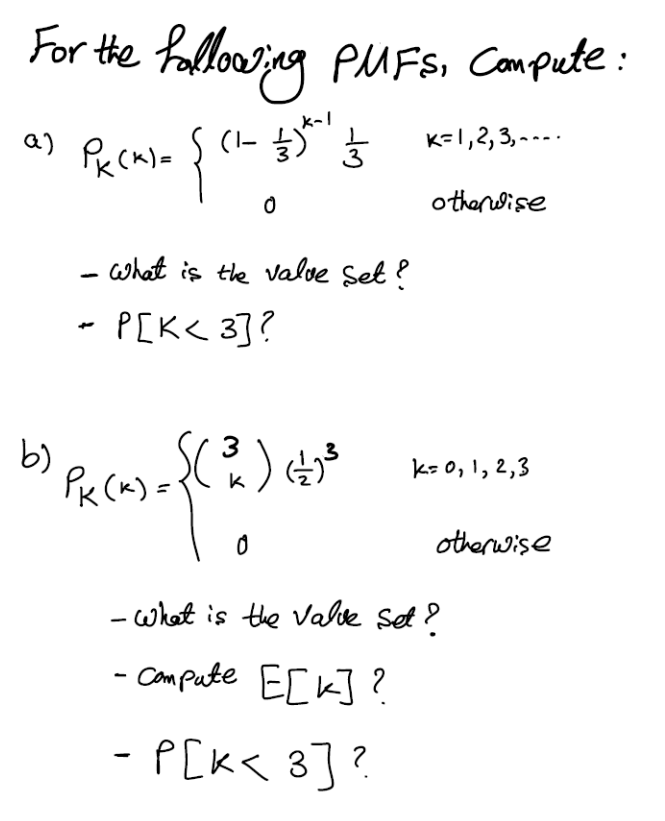 For the following PMFs, Compute:
a) P_K(k) = { (1 - 1/3)^{k-1} 1/3   k=1,2,3,....
0   otherwise
- what is the value set?
- P[K < 3]?
b) P_K(k) = { (3 k) (1/2)^3   k=0,1,2,3
0   otherwise
- what is the value set?
- Compute E[k]?
- P[K < 3]?